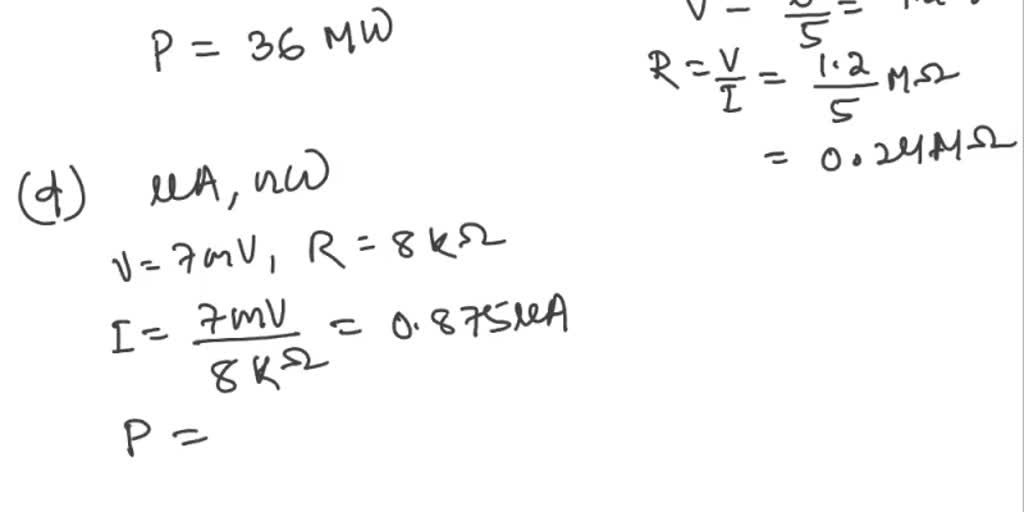 P = 36 MW
V = /5 =
R = V/I = 1.2/5 MΩ
= 0.24MΩ
(d) μA, nW
V = 7mV, R = 8 kΩ
I = 7mV/8kΩ = 0.875μA
P =